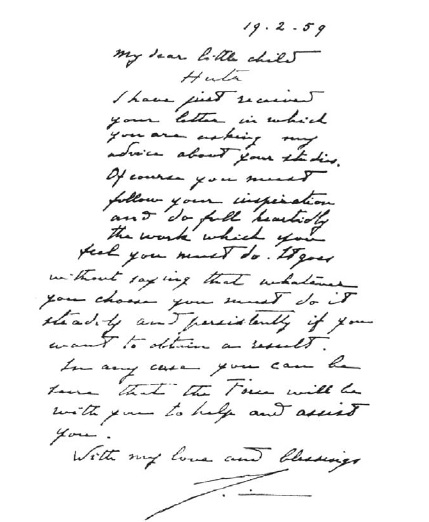 19.2.59
My dear little child
Huta
I have just received
your letter in which
you are asking my
advice about your studies.
Of course you must
follow your inspiration
and do full heartidly
the work which you
feel you must do. It goes
without saying that whatever
you choose you must do it
steadily and persistently if you
want to obtain a result.
In any case you can be
sure that the Force will be
with you to help and assist
you.
With my love and blessings